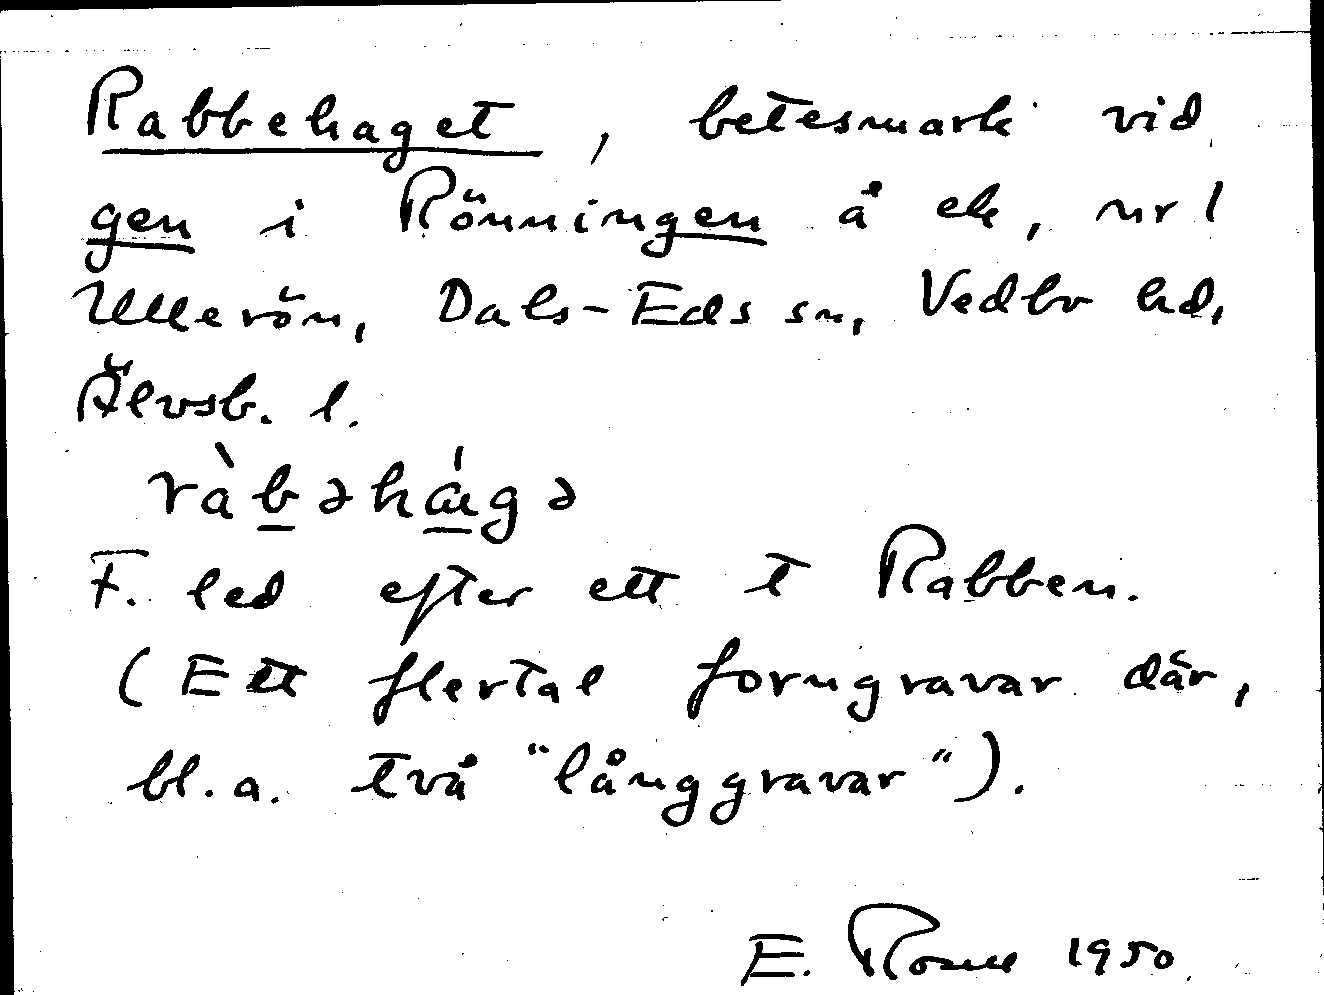 Rabbehaget, betesmark vid
gen i Rönningen å ek, nr 1
Ullerön, Dals-Eds sn, Vedbo hd,
Älvsb. l.
ràbəhágə
F. led efter ett t Rabben.
(Ett flertal forngravar där,
bl.a. två "långgravar").
E. 1950.